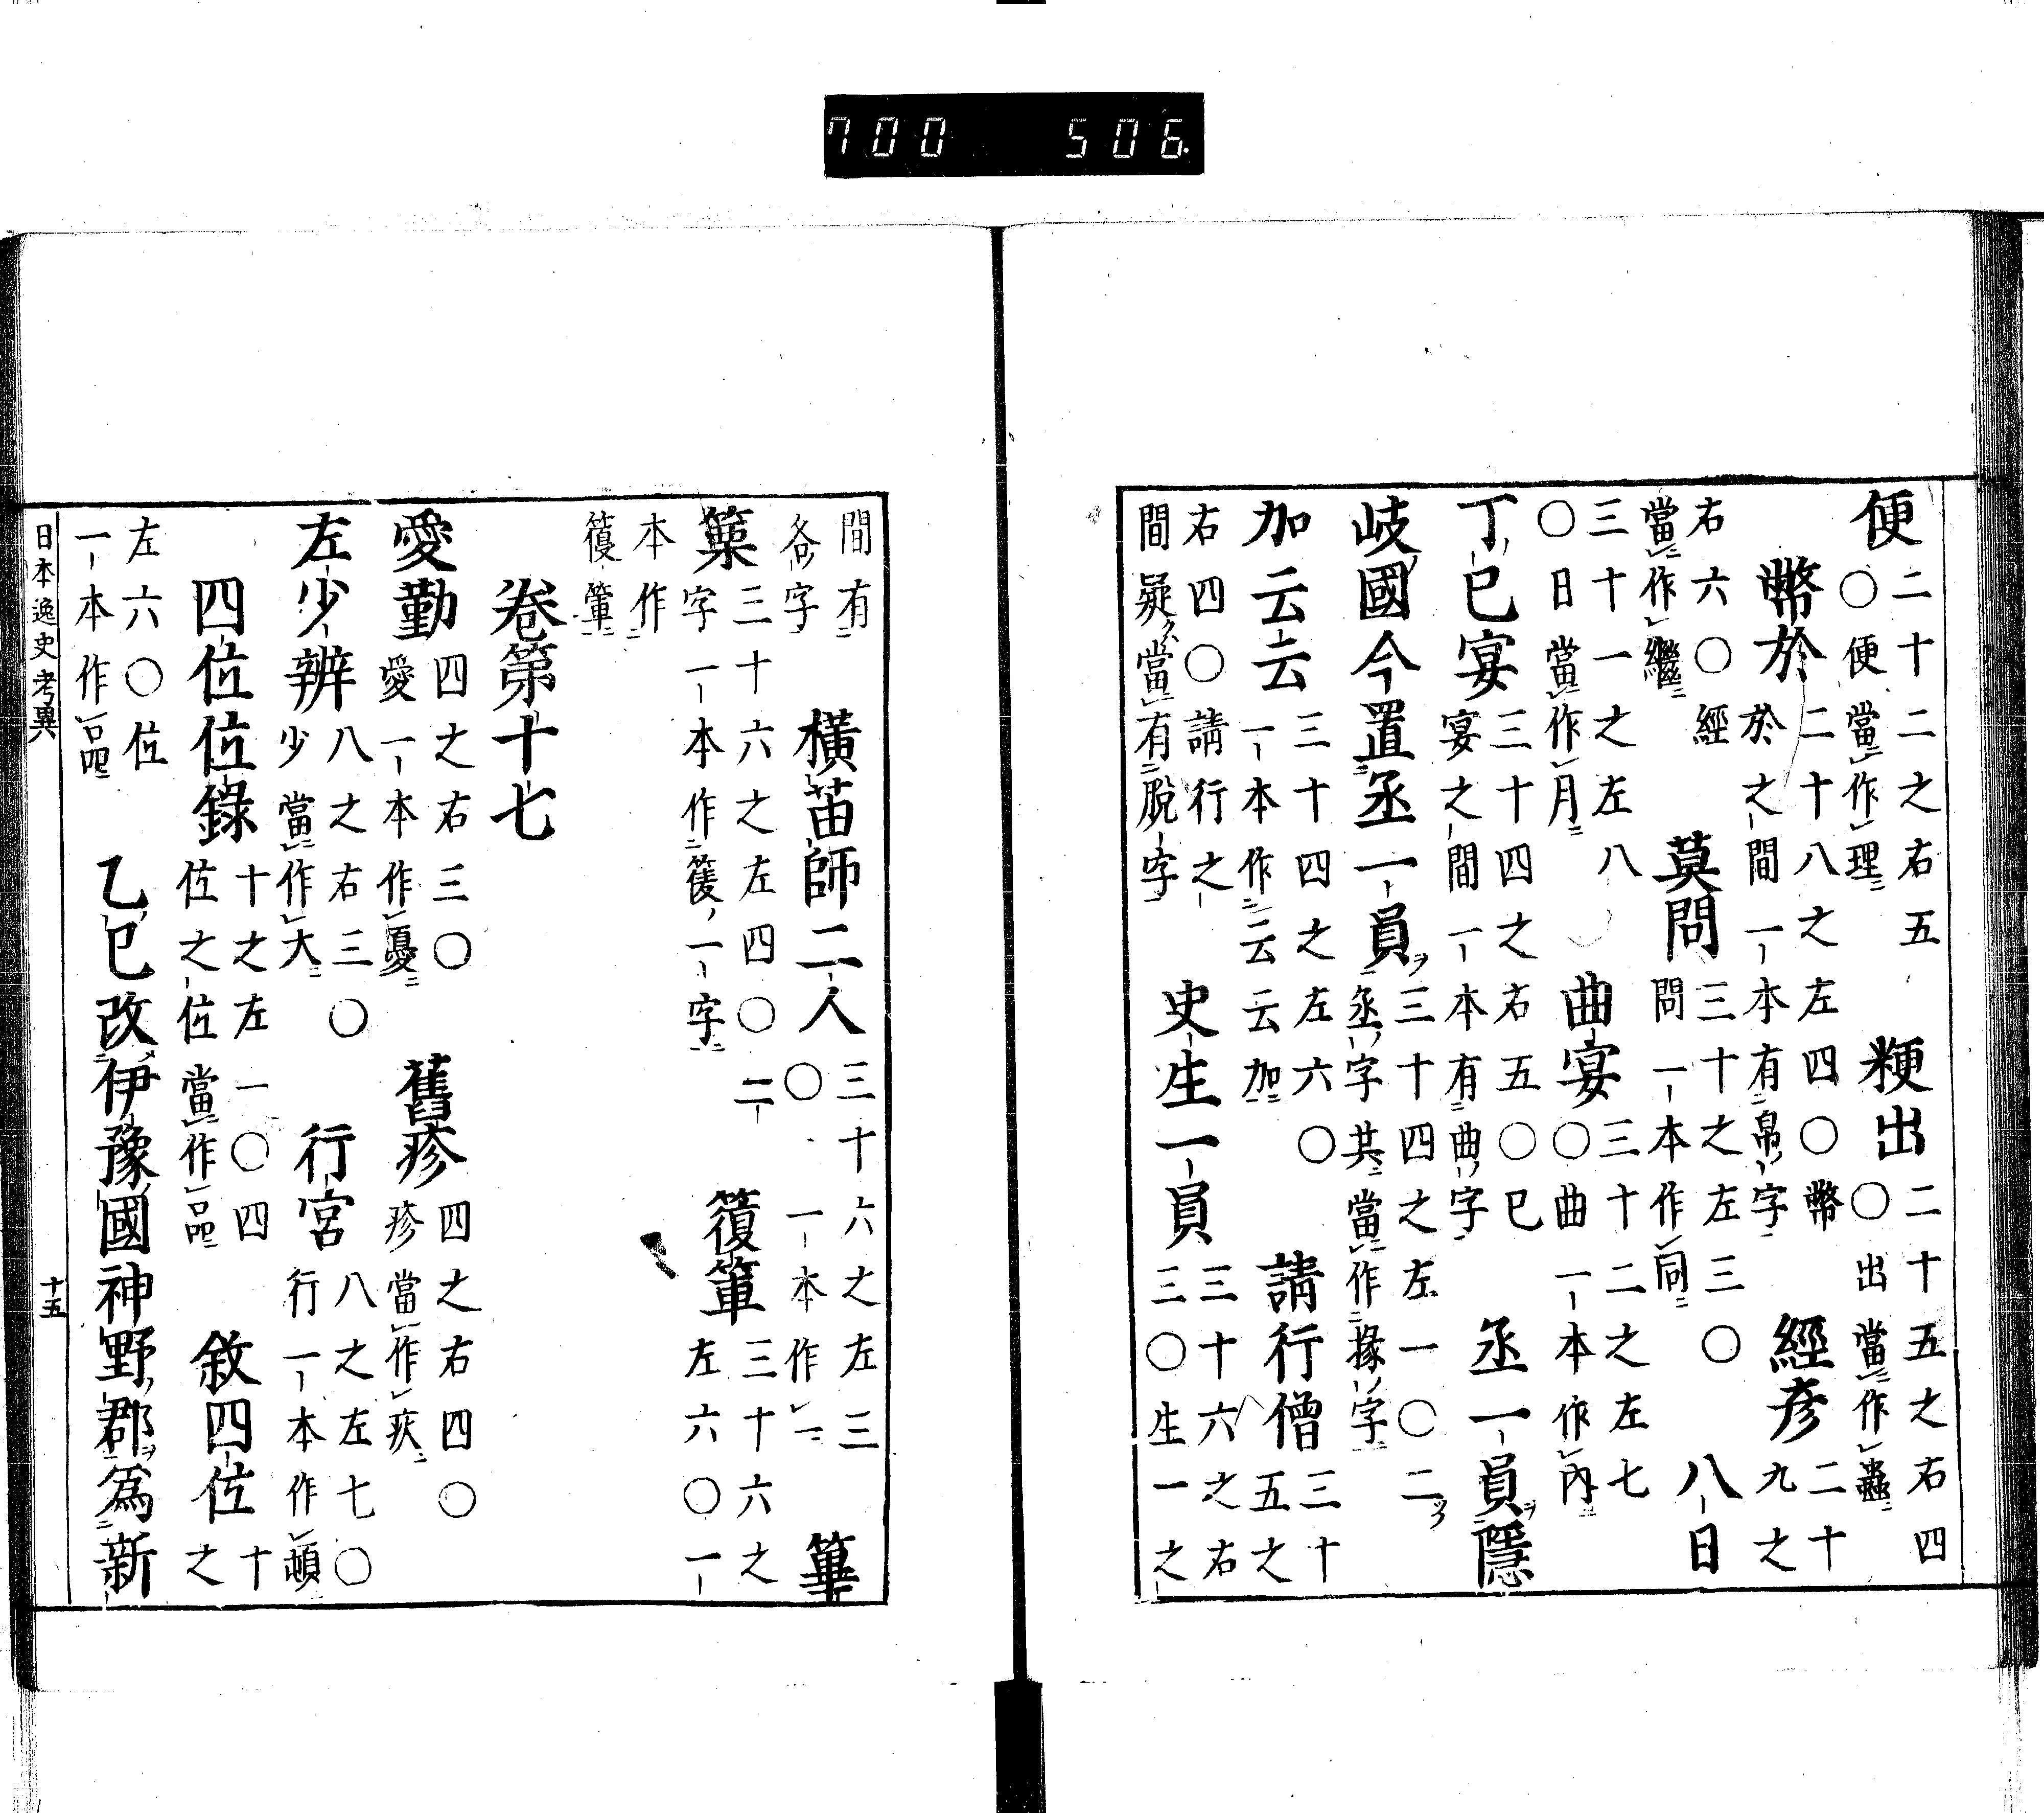 700 506
便二十二之右五○便當作理 粳出二十五之右四○出當作蠱
幣於二十八之左四○幣於之間一本有帛字 經彦二十九之
右六○經當作繼 莫問三十之左三○問一本作同 八日
三十一之左八○日當作月 曲宴三十二之左七○曲一本作內
丁巳宴三十四之右五○巳宴之間一本有曲字 丞一員ヲ隱
岐國今置丞一員ヲ三十四之左一○二ツノ丞字共當作掾字
加云云三十四之左六○一本作云云加 請行僧三十五之
右四○請行之間疑當有脫字 史生一員三十六之右三○生一之
間有各字 橫笛師二人三十六之左三○一本作一 篳
篥三十六之左四○二字一本作一字 三十六之左六○一
本作
卷第十七
愛勤四之右三○愛一本作憂 舊疹四之右四○疹當作疾
左少辨八之右三○少當作大 行宮八之左七○行一本作頓
四位位錄十之左一○四位之位當作品 敘四位十之
左六○位一本作品 乙巳改伊豫國神野郡ヲ為新
日本逸史考異 十五